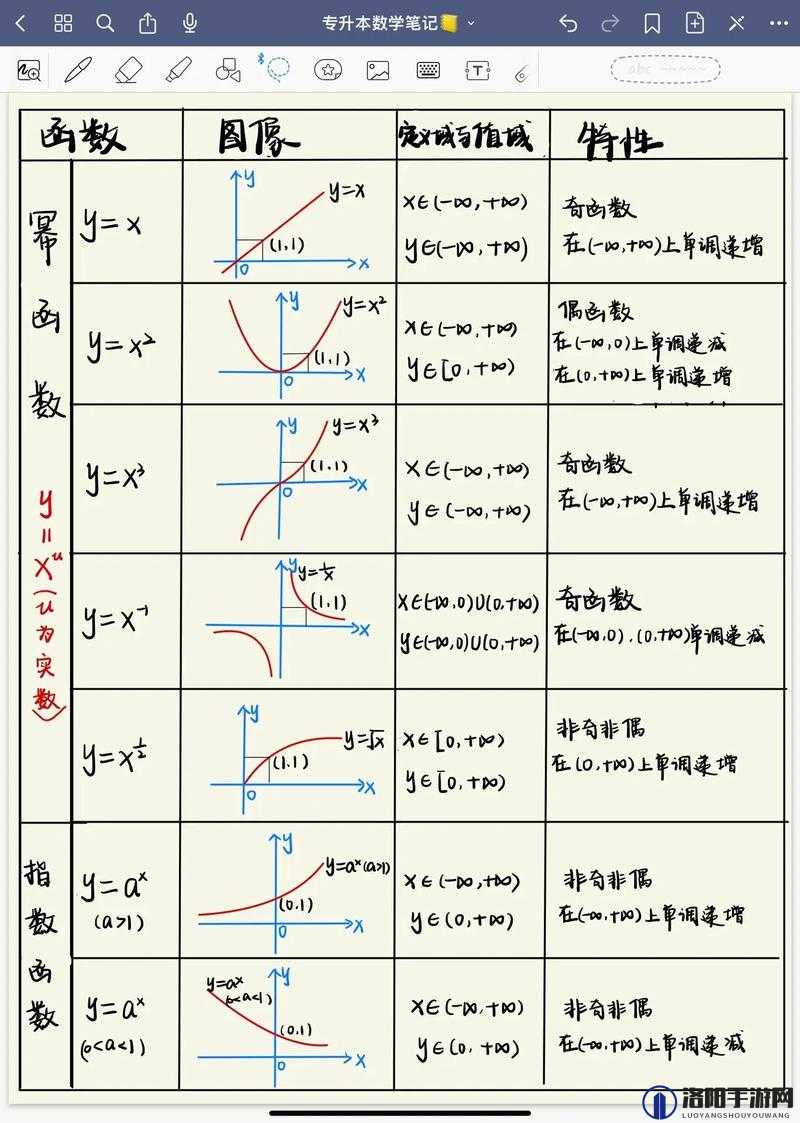 专升本数学笔记
abc
函数 图像 定义域与值域 特性
幂函数 y=xᵘ(u为实数)
y=x
y
y=x
(1,1)
0
x
x∈(-∞,+∞)
y∈(-∞,+∞)
奇函数
在(-∞,+∞)上单调递增
y=x²
y
y=x²
(1,1)
0
x
x∈(-∞,+∞)
y∈[0,+∞)
偶函数
在(-∞,0)上单调递减
在(0,+∞)上单调递增
y=x³
y
y=x³
(1,1)
0
x
x∈(-∞,+∞)
y∈(-∞,+∞)
奇函数
在(-∞,+∞)上单调递增
y=x⁻¹
y
y=1/x
(1,1)
x
x∈(-∞,0)∪(0,+∞)
y∈(-∞,0)∪(0,+∞)
奇函数
在(-∞,0).(0,+∞)单调递减
y=x^½
y
y=√x
(1,1)
0
x
x∈[0,+∞)
y∈[0,+∞)
非奇非偶
在(0,+∞)上单调递增
指数函数
y=aˣ
(a>1)
y
y=aˣ(a>1)
(0,1)
0
x
x∈(-∞,+∞)
y∈(0,+∞)
非奇非偶
在(-∞,+∞)上单调递增
y=aˣ
(0<a<1)
y
y=aˣ
(0<a<1)
(0,1)
0
x
x∈(-∞,+∞)
y∈(0,+∞)
非奇非偶
在(-∞,+∞)上单调递减
洛阳手游网
LUOYANGSHOUYOUWANG